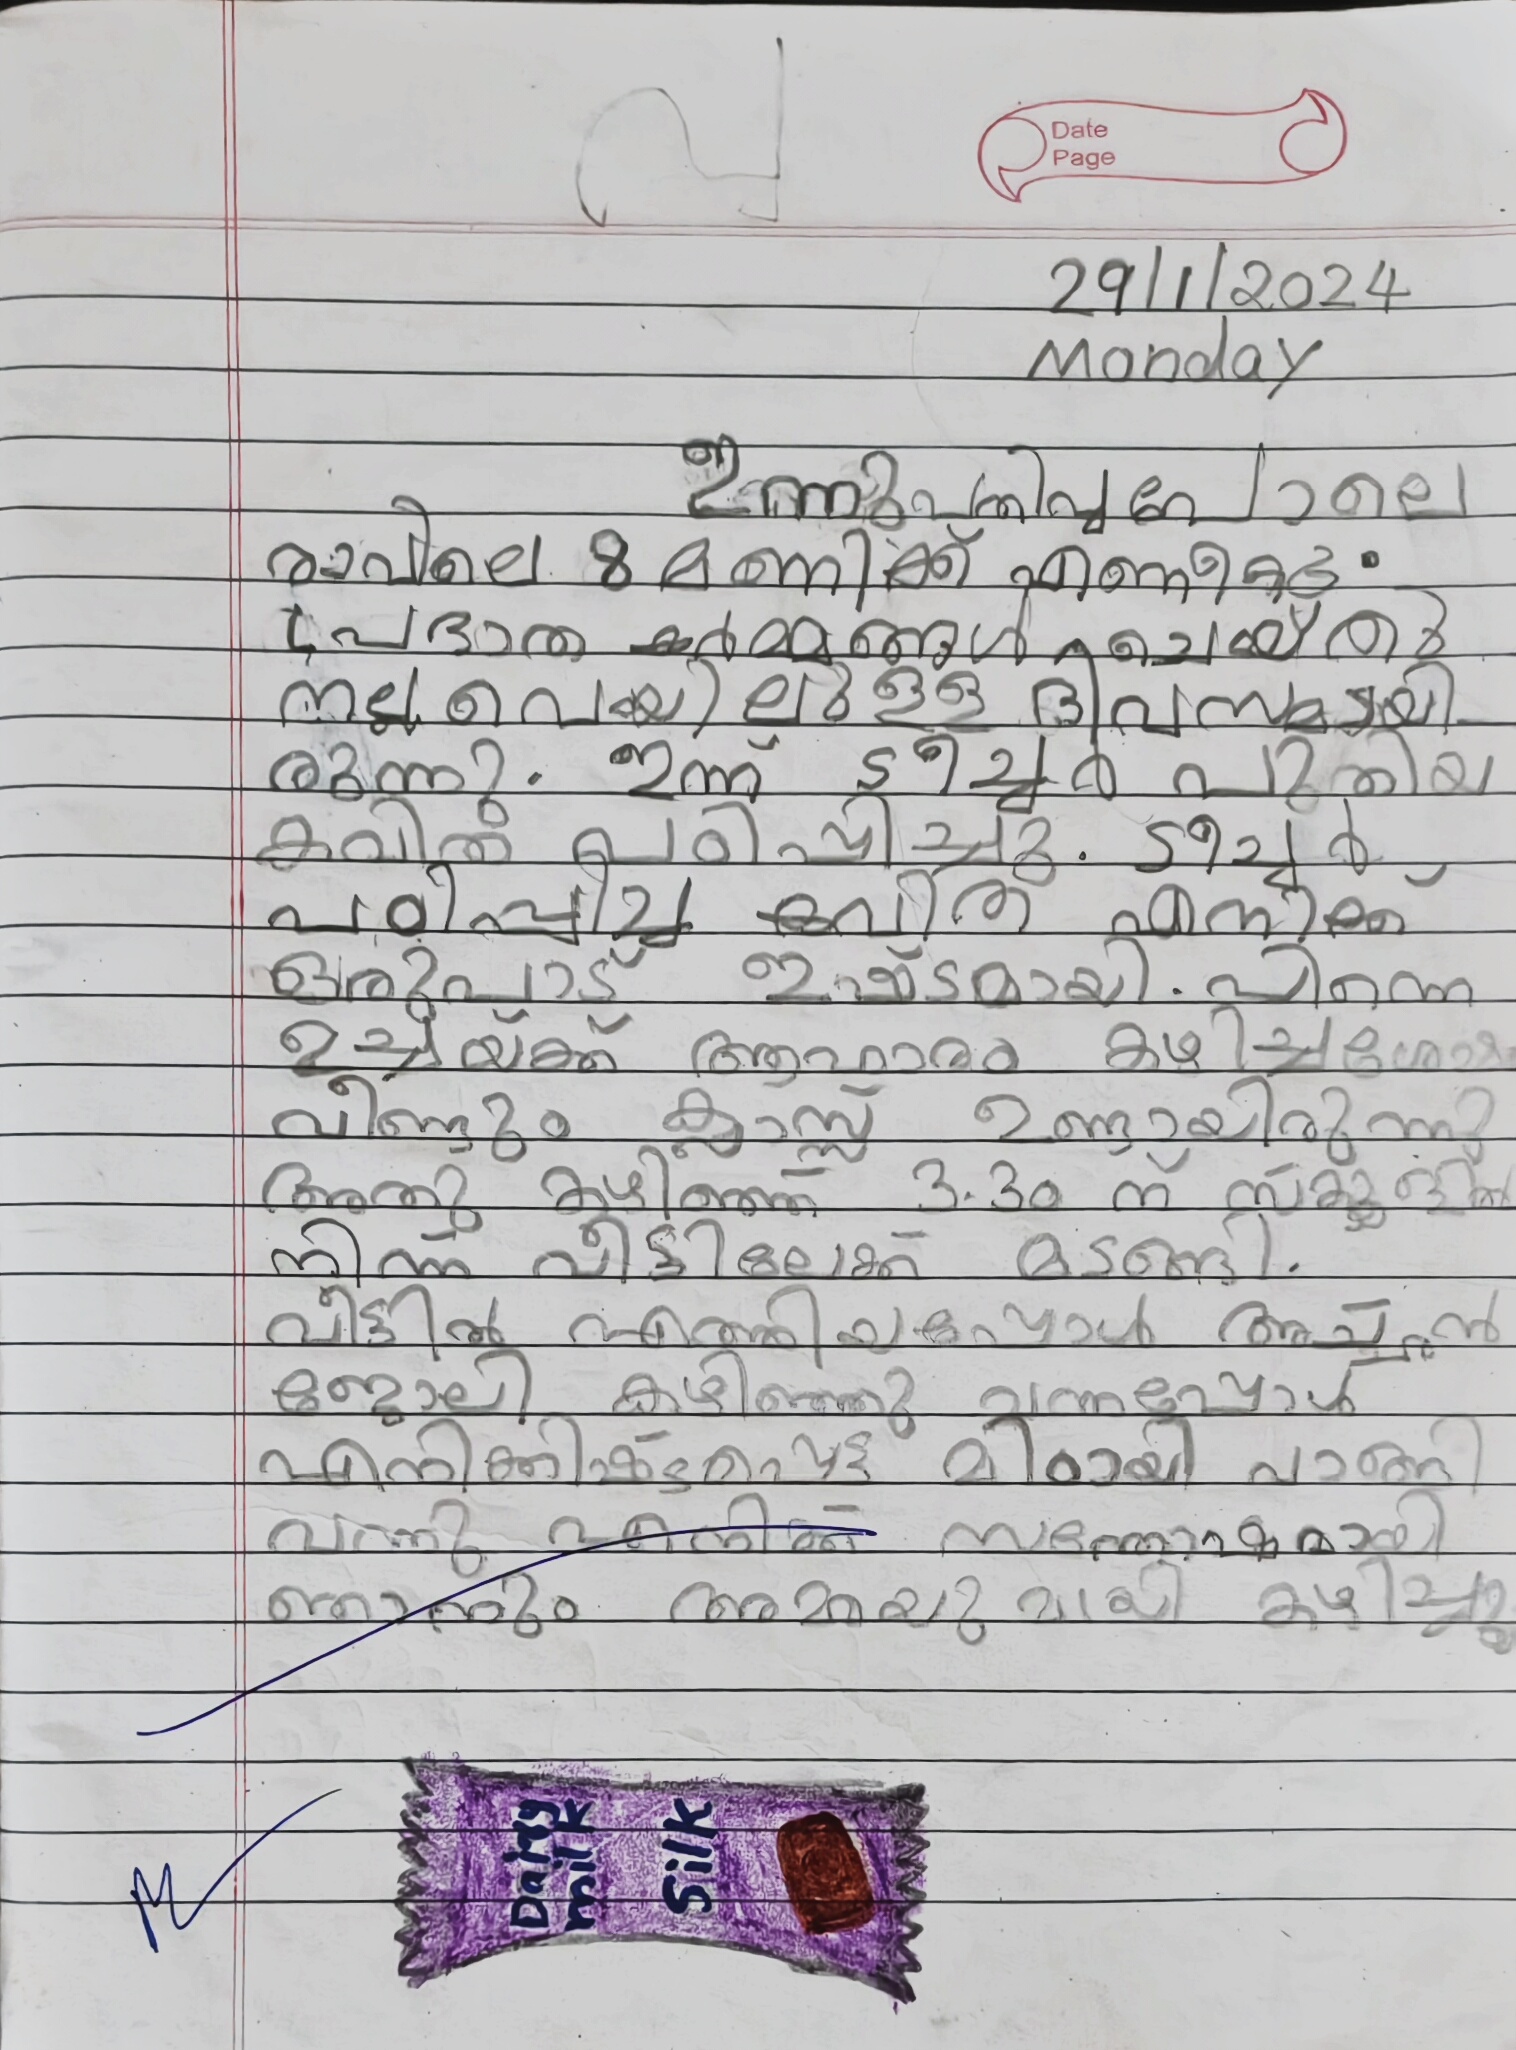 പ
Date
Page
29/1/2024
Monday
ഇന്നുപതിവുപോലെ
രാവിലെ 8 മണിക്ക് എണീറ്റു.
പ്രഭാത കർമ്മങ്ങൾ ചെയ്തു
നല്ല വെയിലുള്ള ദിവസമായി
രുന്നു. ഇന്ന് ടീച്ചർ പുതിയ
കവിത പഠിപ്പിച്ചു. ടീച്ചർ
പഠിപ്പിച്ച കവിത എനിക്ക്
ഒരുപാട് ഇഷ്ടമായി. പിന്നെ
ഉച്ചയ്ക്ക് ആഹാരം കഴിച്ചശേഷം
വീണ്ടും ക്ലാസ്സ് ഉണ്ടായിരുന്നു
അതു കഴിഞ്ഞ് 3.30 ന് സ്കൂളിൽ
നിന്ന് വീട്ടിലേക്ക് മടങ്ങി.
വീട്ടിൽ എത്തിയപ്പോൾ അച്ഛൻ
ജോലി കഴിഞ്ഞു വന്നപ്പോൾ
എനിക്കിഷ്ടപ്പെട്ട മിഠായി വാങ്ങി
വന്നു എനിക്ക് സന്തോഷമായി
ഞാനും അമ്മയുമായി കഴിച്ചു
Dairy milk Silk